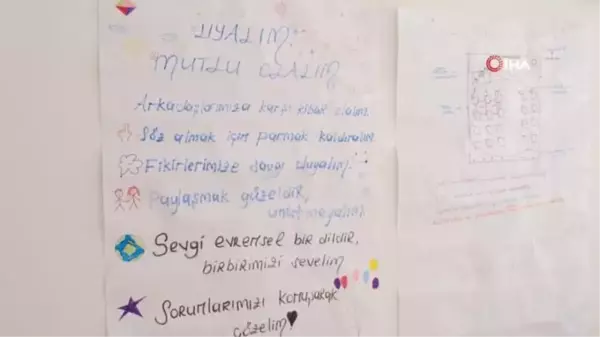 UYALIM
MUTLU OLALIM
Arkadaşlarımıza karşı kibar olalım
Söz almak için parmak kaldıralım
Fikirlerimize saygı duyalım
Paylaşmak güzeldir,
unutmayalım
Sevgi evrensel bir dildir,
birbirimizi sevelim
Sorunlarımızı konuşarak
çözelim
İHA